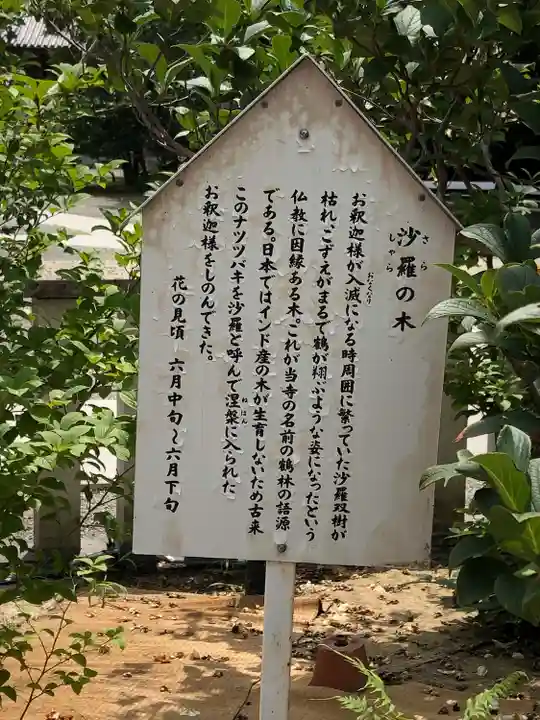 沙羅の木
さら
しゃら
お釈迦様が入滅になる時周囲に繁っていた沙羅双樹が
おなくなり
枯れ、こずえがまるで鶴が翔ぶような姿になったという
仏教に因縁ある木。これが当寺の名前の鶴林の語源
である。日本ではインド産の木が生育しないため古来
このナツツバキを沙羅と呼んで涅槃に入られた
ねはん
お釈迦様をしのんできた。
花の見頃 六月中旬〜六月下旬